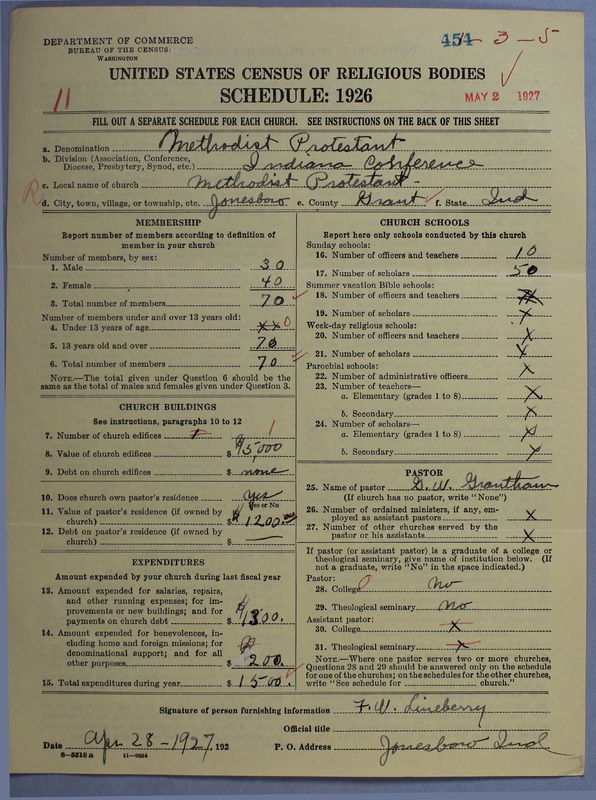 DEPARTMENT OF COMMERCE
BUREAU OF THE CENSUS
WASHINGTON
454 3-5
UNITED STATES CENSUS OF RELIGIOUS BODIES
SCHEDULE: 1926
11
MAY 2 1927
FILL OUT A SEPARATE SCHEDULE FOR EACH CHURCH. SEE INSTRUCTIONS ON THE BACK OF THIS SHEET
a. Denomination Methodist Protestant
b. Division (Association, Conference, Diocese, Presbytery, Synod, etc.) Indiana Conference
c. Local name of church Methodist Protestant
R
d. City, town, village, or township, etc. Jonesboro e. County Grant f. State Ind
MEMBERSHIP
Report number of members according to definition of
member in your church
Number of members, by sex:
1. Male 30
2. Female 40
3. Total number of members 70
Number of members under and over 13 years old:
4. Under 13 years of age xx 0
5. 13 years old and over 70
6. Total number of members 70
NOTE.—The total given under Question 6 should be the
same as the total of males and females given under Question 3.
CHURCH BUILDINGS
See instructions, paragraphs 10 to 12
7. Number of church edifices 1 1
8. Value of church edifices $ 15,000
9. Debt on church edifices $ none
10. Does church own pastor's residence yes
Yes or No
11. Value of pastor's residence (if owned by
church) $ 1200.00
12. Debt on pastor's residence (if owned by
church) $ —
EXPENDITURES
Amount expended by your church during last fiscal year
13. Amount expended for salaries, repairs,
and other running expenses; for im-
provements or new buildings; and for
payments on church debt $ 1300.
14. Amount expended for benevolences, in-
cluding home and foreign missions; for
denominational support; and for all
other purposes $ 200.
15. Total expenditures during year $ 1500.
CHURCH SCHOOLS
Report here only schools conducted by this church
Sunday schools:
16. Number of officers and teachers 10
17. Number of scholars 50
Summer vacation Bible schools:
18. Number of officers and teachers
19. Number of scholars x
Week-day religious schools:
20. Number of officers and teachers x
21. Number of scholars x
Parochial schools:
22. Number of administrative officers x
23. Number of teachers—
a. Elementary (grades 1 to 8) x
b. Secondary x
24. Number of scholars—
a. Elementary (grades 1 to 8) x
b. Secondary x
PASTOR
25. Name of pastor G. W. Grantham
(If church has no pastor, write "None")
26. Number of ordained ministers, if any, em-
ployed as assistant pastors x
27. Number of other churches served by the
pastor or his assistants x
If pastor (or assistant pastor) is a graduate of a college or
theological seminary, give name of institution below. (If
not a graduate, write "No" in the space indicated.)
Pastor:
28. College 0 No
29. Theological seminary No
Assistant pastor:
30. College x
31. Theological seminary x
NOTE.—Where one pastor serves two or more churches,
Questions 28 and 29 should be answered only on the schedule
for one of the churches; on the schedules for the other churches,
write "See schedule for church."
Signature of person furnishing information F. W. Lineberry
Official title
Date Apr 28-1927, 192 P. O. Address Jonesboro Ind
6-5518 a 11-9054